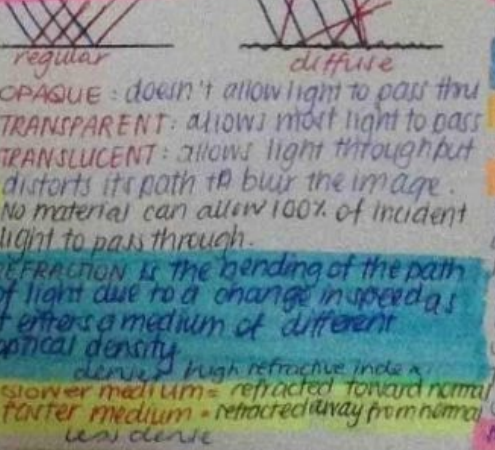 regular diffuse
OPAQUE: doesn't allow light to pass thru
TRANSPARENT: allows most light to pass
TRANSLUCENT: allows light through but
distorts its path to blur the image.
No material can allow 100% of incident
light to pass through.
REFRACTION is the bending of the path
of light due to a change in speed as
it enters a medium of different
optical density
dense, high refractive index
slower medium = refracted toward normal
faster medium = refracted away from normal
less dense